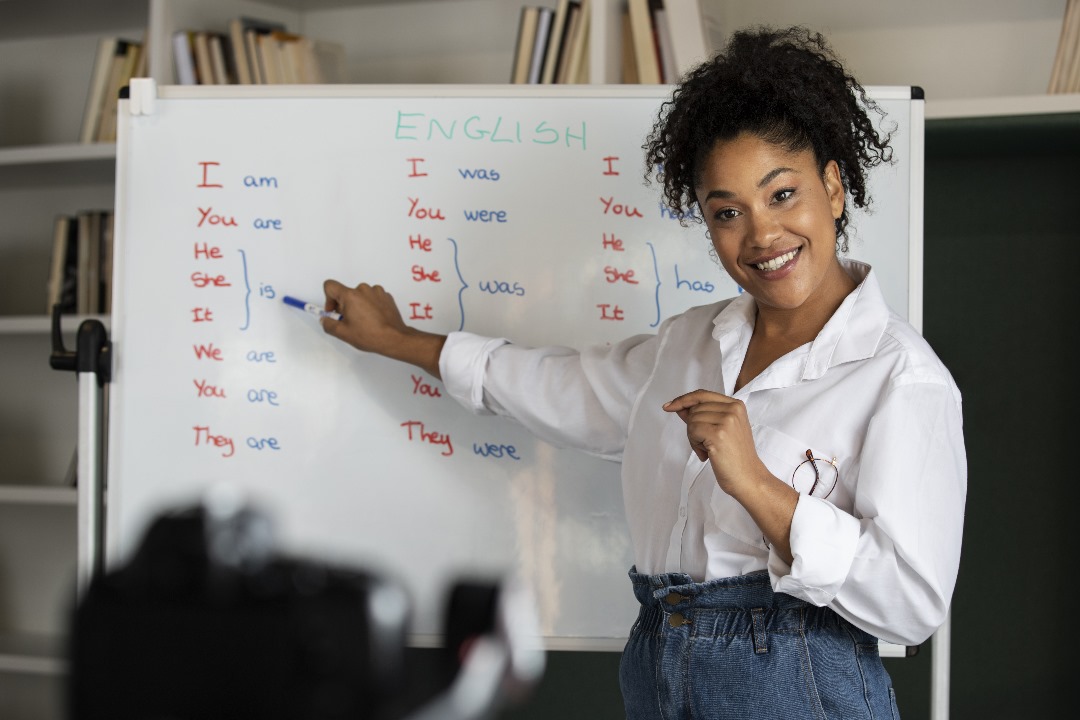 ENGLISH
I am
You are
He
She
It
is
We are
You are
They are
I was
You were
He
She
It
was
You
They were
I
You
He
She
It
has